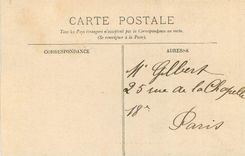 CARTE POSTALE
Tous les Pays étrangers n'acceptent pas la Correspondance au recto.
(Se renseigner à la Poste).
CORRESPONDANCE
ADRESSE
Mr Gilbert
25 rue de la Chapelle
18e
Paris